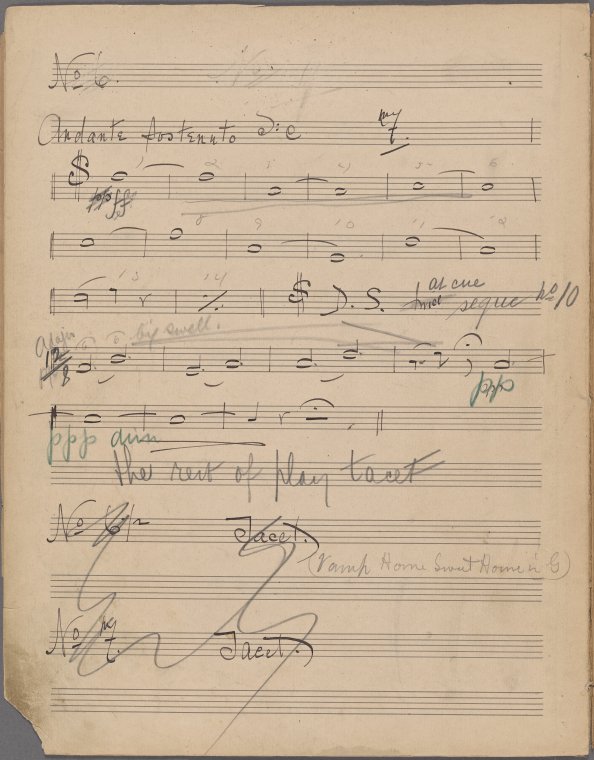 No 6.
Andante Sostenuto C 7.
1 2 3 4 5 6
pp ff
8 9 10 11 12
13 14 D. S. at cue segue No 10
Adagio big swell.
12/8
ppp
ppp dim
the rest of play tacet
No 6½ Tacet.
(Vamp Home Sweet Home in G)
No 7. Tacet.